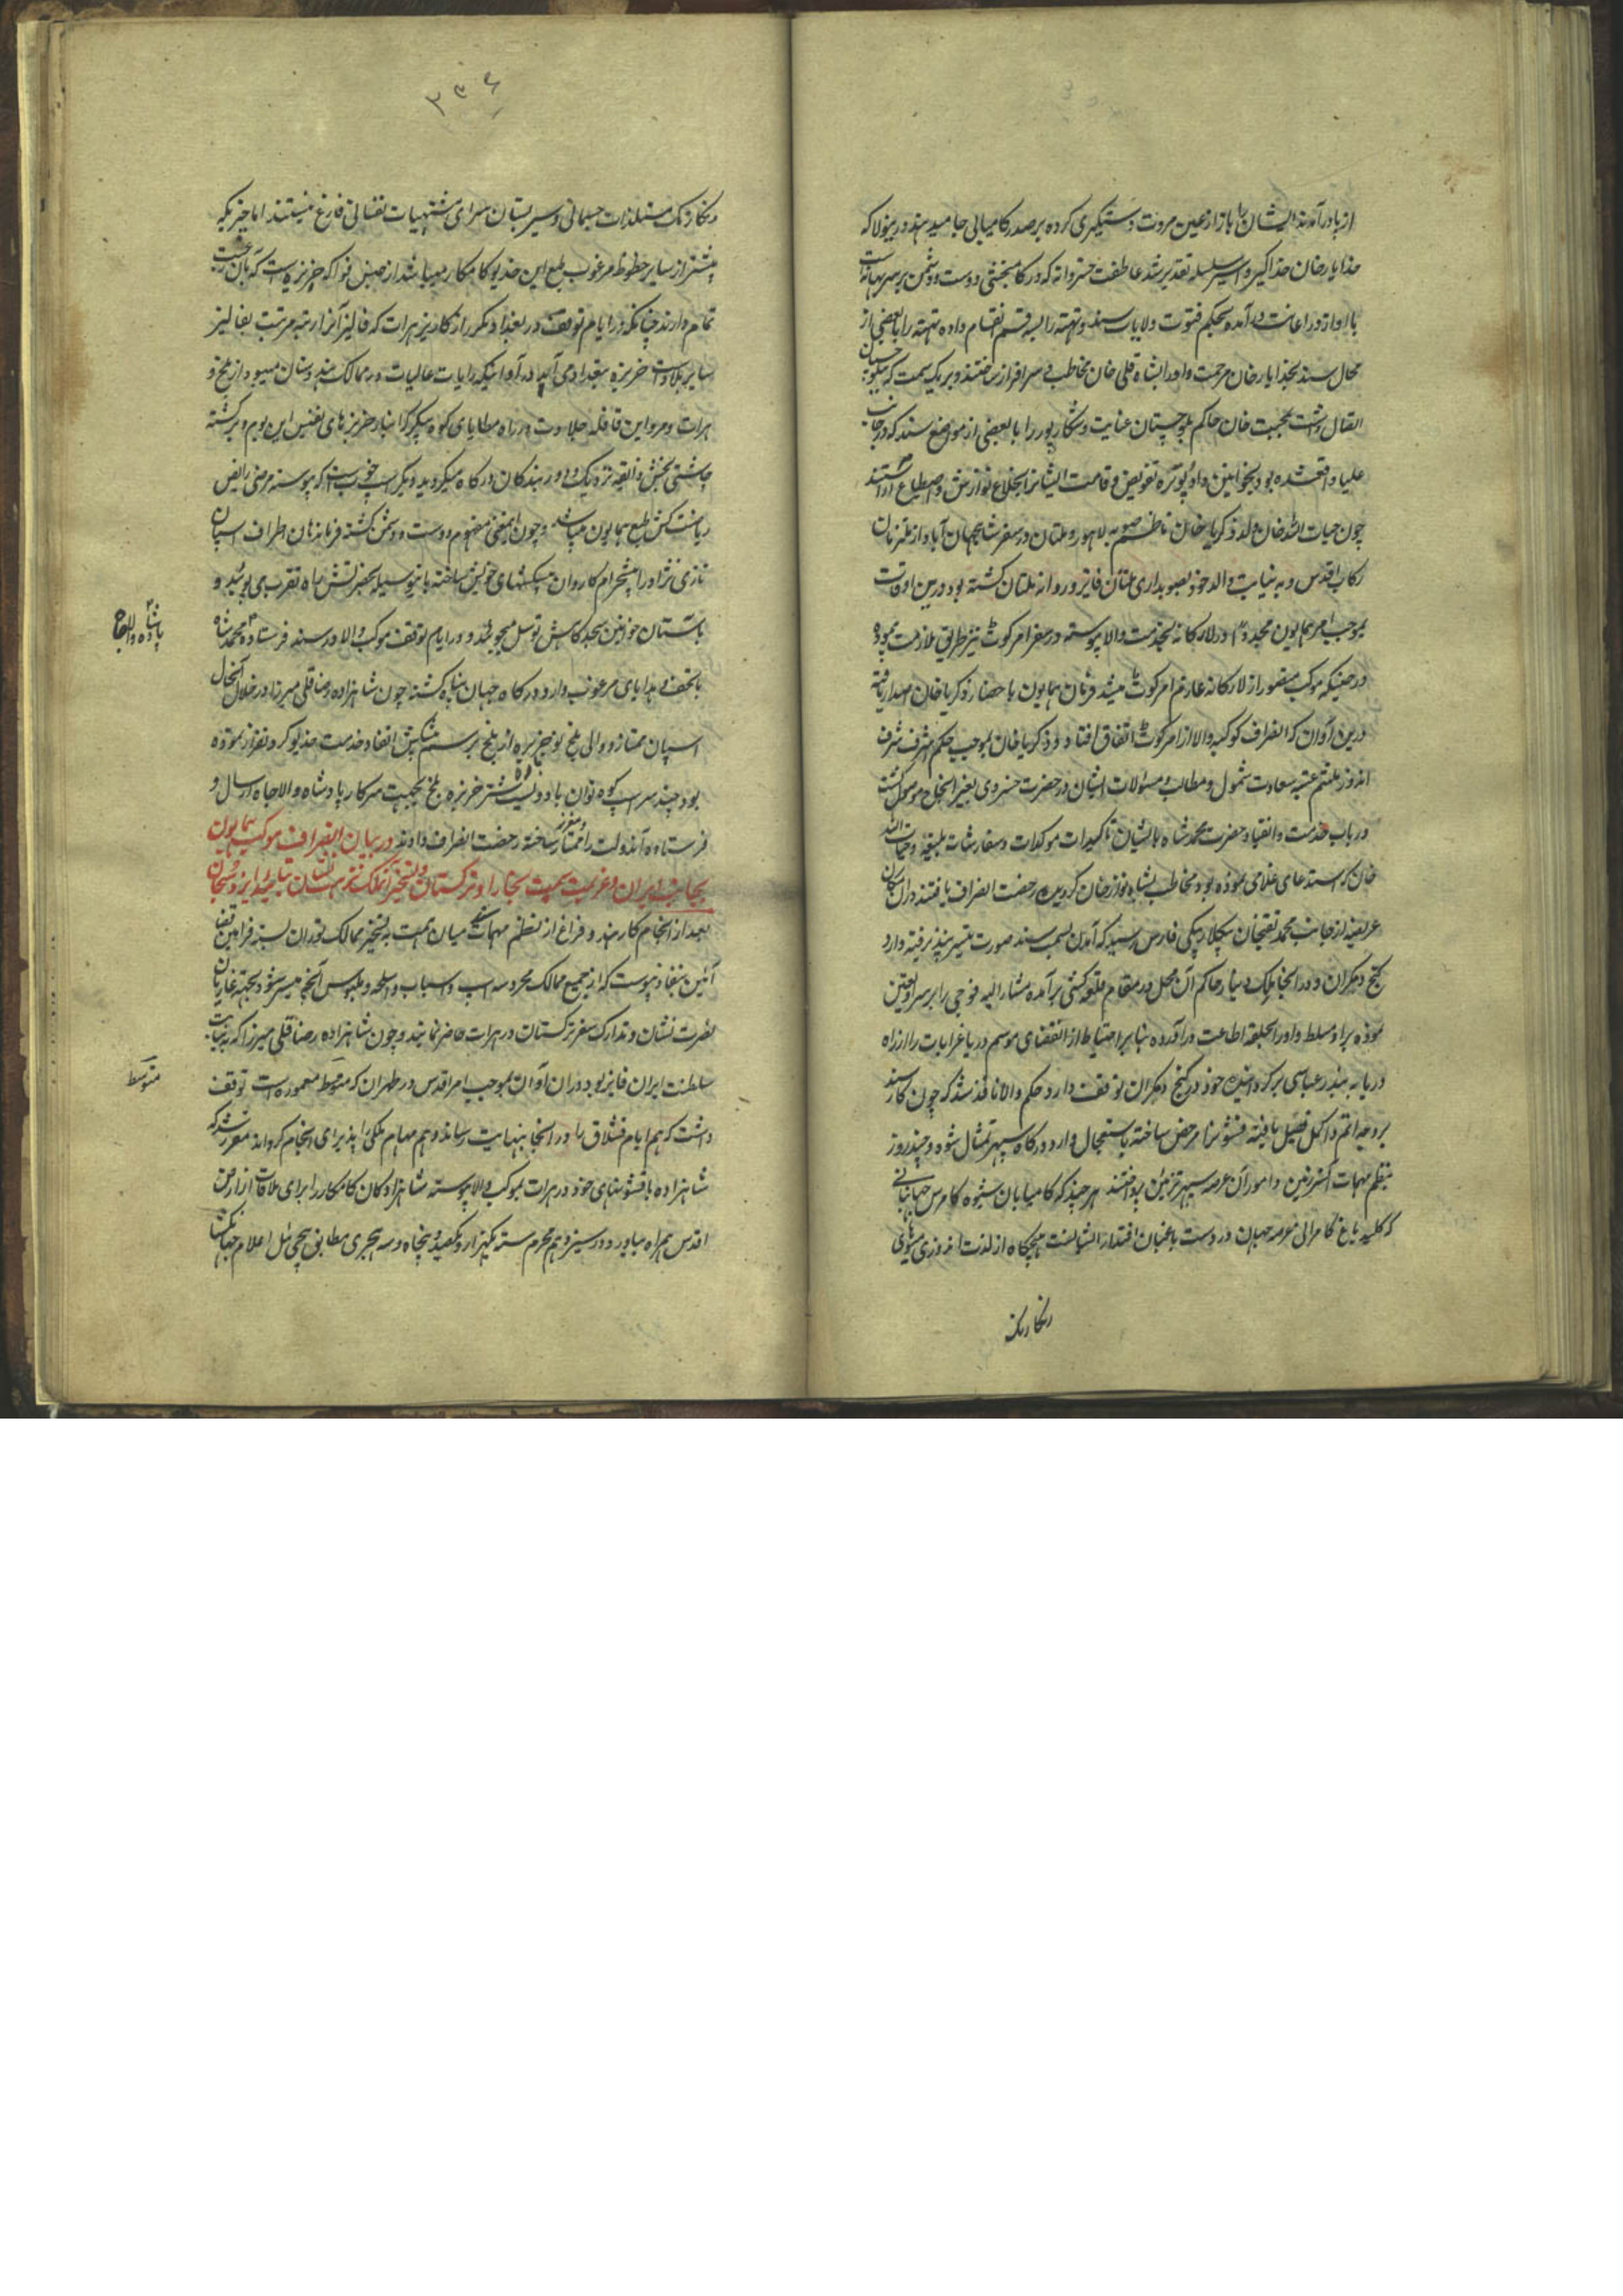 از پا درآمدند ایشان را باز از عین مروت دستگیری کرده بر صدر کامیابی جا میدهند درینولا که
خدایارخان خداگیر و اسیر سلسله تقدیر شد عاطفت خسروانه که در کامبخشی دوست و دشمن بر سر بهانه است
با او از در اعانت درآمده بحکم فتوت ولایات سند و تهته را بسه قسم انقسام داده تهته را با بعضی از
محال سند بخدایارخان مرحمت و او را بشاه قلی خان مخاطب و سرافراز ساختند و بر یک سمت که ببلوچستان
اتصال داشت بمحبت خان حاکم بلوچستان عنایت و شکارپور را با بعضی از مواضع سند که در جانب
علیا واقعشده بود بخوانین داودپوتره تفویض و قامت ایشانرا بخلاع نوازش و اصطناع آراستند
چون حیات الله خان ولد ذکریاخان ناظم صوبه لاهور و ملتان در سفر شاهجهان آباد از ملتزمان
رکاب اقدس و به نیابت والد خود بصوبه داری ملتان فایز و روانه ملتان گشته بود درین اوقات
بموجب امر همایون مجددا در لارکانه بخدمت والا پیوسته در سفر امرکوٹ نیز طریق ملازمت پیمود
در حینیکه موکب منصور از لارکانه عازم امرکوٹ میشد فرمان همایون باحضار ذکریاخان اصدار یافته
درین آوان که انصراف کوکبه والا از امرکوٹ اتفاق افتاد ذکریاخان بموجب حکم اشرف شرف
اندوز ملثم عتبه سعادت شمول و مطالب و مسئولات ایشان در حضرت خسروی بعز انجاح موصول گشت
و در باب خدمت و انقیاد حضرت محمدشاه بایشان تاکیدات موکدات و سفارشات بلیغه و حیات الله
خان که استدعای غلامی نموده بود مخاطب بشاه نوازخان گردیده رخصت انصراف یافتند در آن مکان
عریضه از جانب محمد تقیخان بیگلربیگی فارس رسید که آمدن بسمت سند صورت تیسیر نپذیرفته وارد
کیچ و مکران و در انجا ملک دینار حاکم آن محل در مقام قلعه کشی برآمده مشارالیه فوجی را بر سر او تعیین
نموده بر او مسلط و او را بحلقه اطاعت درآورده بنابر احتیاط از انقضای موسم دریا غرابات را از راه
دریا به بندر عباسی برگردانیده خود در کیچ و مکران توقف دارد حکم والا نافذ شد که چون کار سند
بر وجه اتم و اکمل فیصل یافته قشون را مرخص ساخته باستعجال وارد درگاه سپهر تمثال شود و چند روز
بنظم مهمات آنسرزمین و امور آن عرصه سپهر تزئین پرداختند هر چند که کامیابان شیوه کامرس جهانبانی
که کلید باغ کامرانی عرصه جهان در دست باغبان اقتدار ایشانست هیچگاه از لذت اندوزی میوهای
رنگارنگ
۲۳۶
رنگارنگ مستلذات جسمانی و سیر بستان سرای مشتهیات نفسانی فارغ نیستند اما چیزیکه
بیشتر از سایر حظوظ مرغوب طبع این خدیو کامکار میباشد از جنس فواکه خربزه است که بان رغبت
تمام دارند چنانکه در ایام توقف در بغداد مکرر از کاریز هرات که فالیز آنرا رتبه مرتبت بفالیز
سایر بلاد است خربزه ببغداد می آمد و در آوانیکه رایات عالیات در ممالک هندوستان میبود از بلخ و
هرات و مرو این قافله حلاوت در راه مطایای کوه پیکر گرانبار خربزهای نفیس این بوم و بر گشته
چاشنی بخش ذائقه نزدیک و دور بندگان درگاه میگردید دیگر اسب خوب است که پیوسته مرضی رایض
ریاضت کش طبع همایون میباشد و چون اینمعنی مفهوم دوست و دشمن گشته فرمانرمان اطراف اسبان
تازی نژاد را پیشخرام کاروان پیشکشهای خویش ساخته باینوسیله بحضرتش راه تقرب می پویند و
باستان خواقین سجدگاهش توسل میجویند و در ایام توقف موکب والا در سند فرستاده محمدشاه
پادشاه والاجاه
با تحف و هدایای مرغوب وارد درگاه جهان پناه گشته چون شاهزاده رضاقلی میرزا در خلال آنحال
اسبان ممتاز و والی بلخ نوع خربزه از بلخ برسم پیشکش انفاد خدمت خدیو گردنفراز نموده
بود چند سر اسب کوه توان باد و بیست شتر خربزه بلخ بجهت سرکار پادشاه والاجاه ارسال و
فرستاده آندولت را ممتاز و معزز ساخته رخصت انصراف دادند در بیان انصراف موکب همایون
بجانب ایران و عزیمت بسمت بخارا و ترکستان و تسخیر آنملک نزهت نشان بتائید ایزد سبحان
بعد از انجام کار هند و فراغ از نظم مهمات میان همت به تسخیر ممالک توران بسته فرامین قضا
آئین بنفاذ پیوست که از جمیع ممالک محروسه اسب و اسباب و اسلحه و ملبوس آنچه میسر شود بجهته غازیان
نصرت نشان و تدارک سفر ترکستان در هرات حاضر نمایند و چون شاهزاده رضاقلی میرزا که به نیابت
سلطنت ایران فایز بود در آن آوان بموجب امر اقدس در طهران که متوسط معموره است توقف
متوسط
داشت که هم ایام قشلاق را در انجا بنهایت رساند و هم مهام ملکی را پذیرای انجام گرداند مقرر شد که
شاهزاده با قشونهای خود در هرات بموکب والا پیوسته شاهزادگان کامکار را برای ملاقات از ارض
اقدس همراه بیاورد و در سیزدهم محرم سنه یکهزار و یکصد و پنجاه و سه هجری مطابق پیچی ئیل اعلام جهانگشا